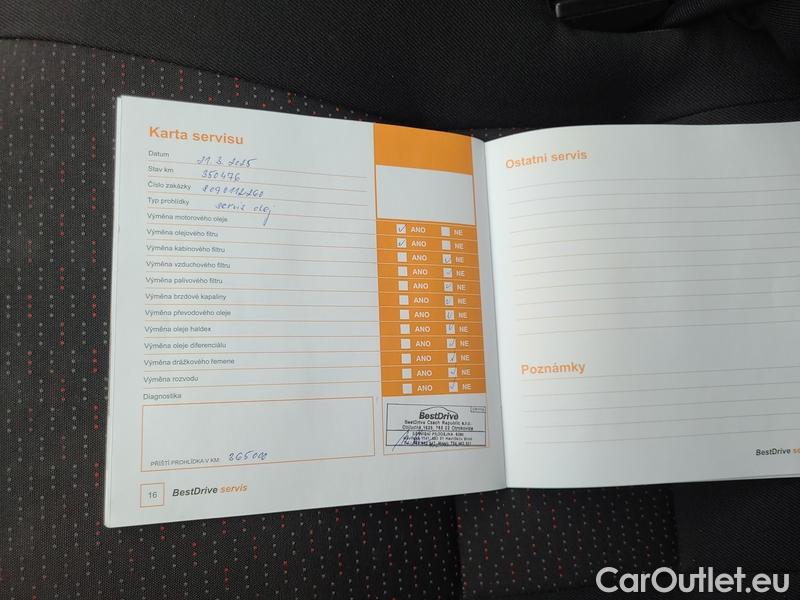 Karta servisu
Datum 21. 3. 2025
Stav km 350476
Číslo zakázky 8090112260
Typ prohlídky servis olej
Výměna motorového oleje ANO NE
Výměna olejového fitru ANO NE
Výměna kabinového filtru ANO NE
Výměna vzduchového filtru ANO NE
Výměna palivového filtru ANO NE
Výměna brzdové kapaliny ANO NE
Výměna převodového oleje ANO NE
Výměna oleje haldex ANO NE
Výměna oleje diferenciálu ANO NE
Výměna drážkového řemene ANO NE
Výměna rozvodu ANO NE
Diagnostika ANO NE
PŘÍŠTÍ PROHLÍDKA V KM: 365000
BestDrive
BestDrive Czech Republic s.r.o.
Objízdná 1628, 765 02 Otrokovice
16 BestDrive servis
Ostatní servis
Poznámky
BestDrive se
CarOutlet.eu